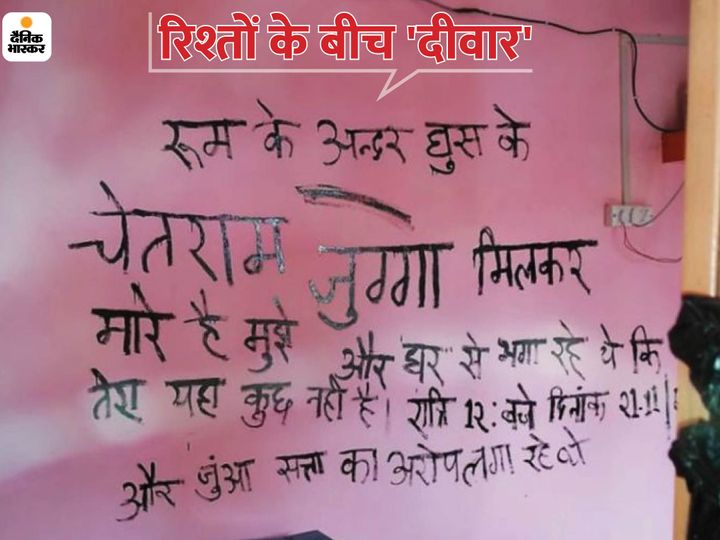 दैनिक
भास्कर
रिश्तों के बीच 'दीवार'
रूम के अन्दर घुस के
चेतराम जुग्गा मिलकर
मारे है मुझे और घर से भगा रहे थे कि
तेरा यहा कुछ नही है। रात्रि 12: बजे दिनांक 21-11
और जुंआ सत्ता का अरोप लगा रहे वो